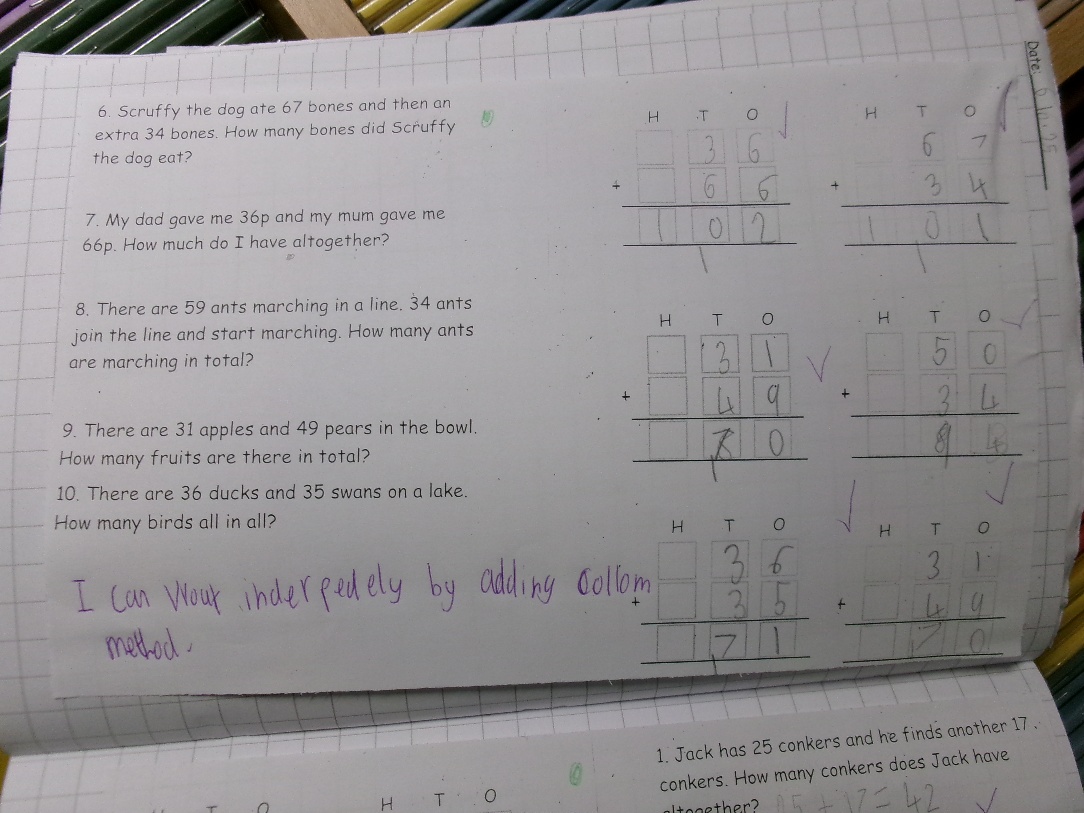 6. Scruffy the dog ate 67 bones and then an
extra 34 bones. How many bones did Scruffy
the dog eat?
7. My dad gave me 36p and my mum gave me
66p. How much do I have altogether?
8. There are 59 ants marching in a line. 34 ants
join the line and start marching. How many ants
are marching in total?
9. There are 31 apples and 49 pears in the bowl.
How many fruits are there in total?
10. There are 36 ducks and 35 swans on a lake.
How many birds all in all?
I can Wour inderpedely by adding Collom
method.
H T O
3 6
+ 6 6
1 0 2
1
H T O
6 7
+ 3 4
1 0 1
1
H T O
3 1
+ 4 9
0
1
H T O
5 0
+ 3 4
4
H T O
3 6
+ 3 5
7 1
1
H T O
3 1
+ 4 9
7 0
Date:
1. Jack has 25 conkers and he finds another 17
conkers. How many conkers does Jack have
altogether? 25 + 17 = 42
H T O
T O